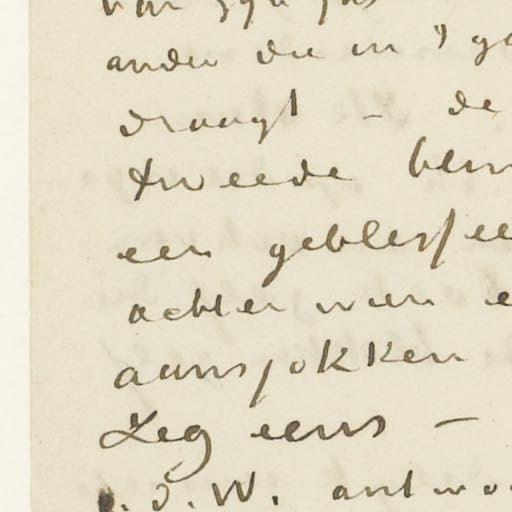 van zijn jas
ander die in 't ga
draagt – de
tweede ben
een geblesse
achter wien e
aansjokken
Zeg eens –
.d.W. antwo